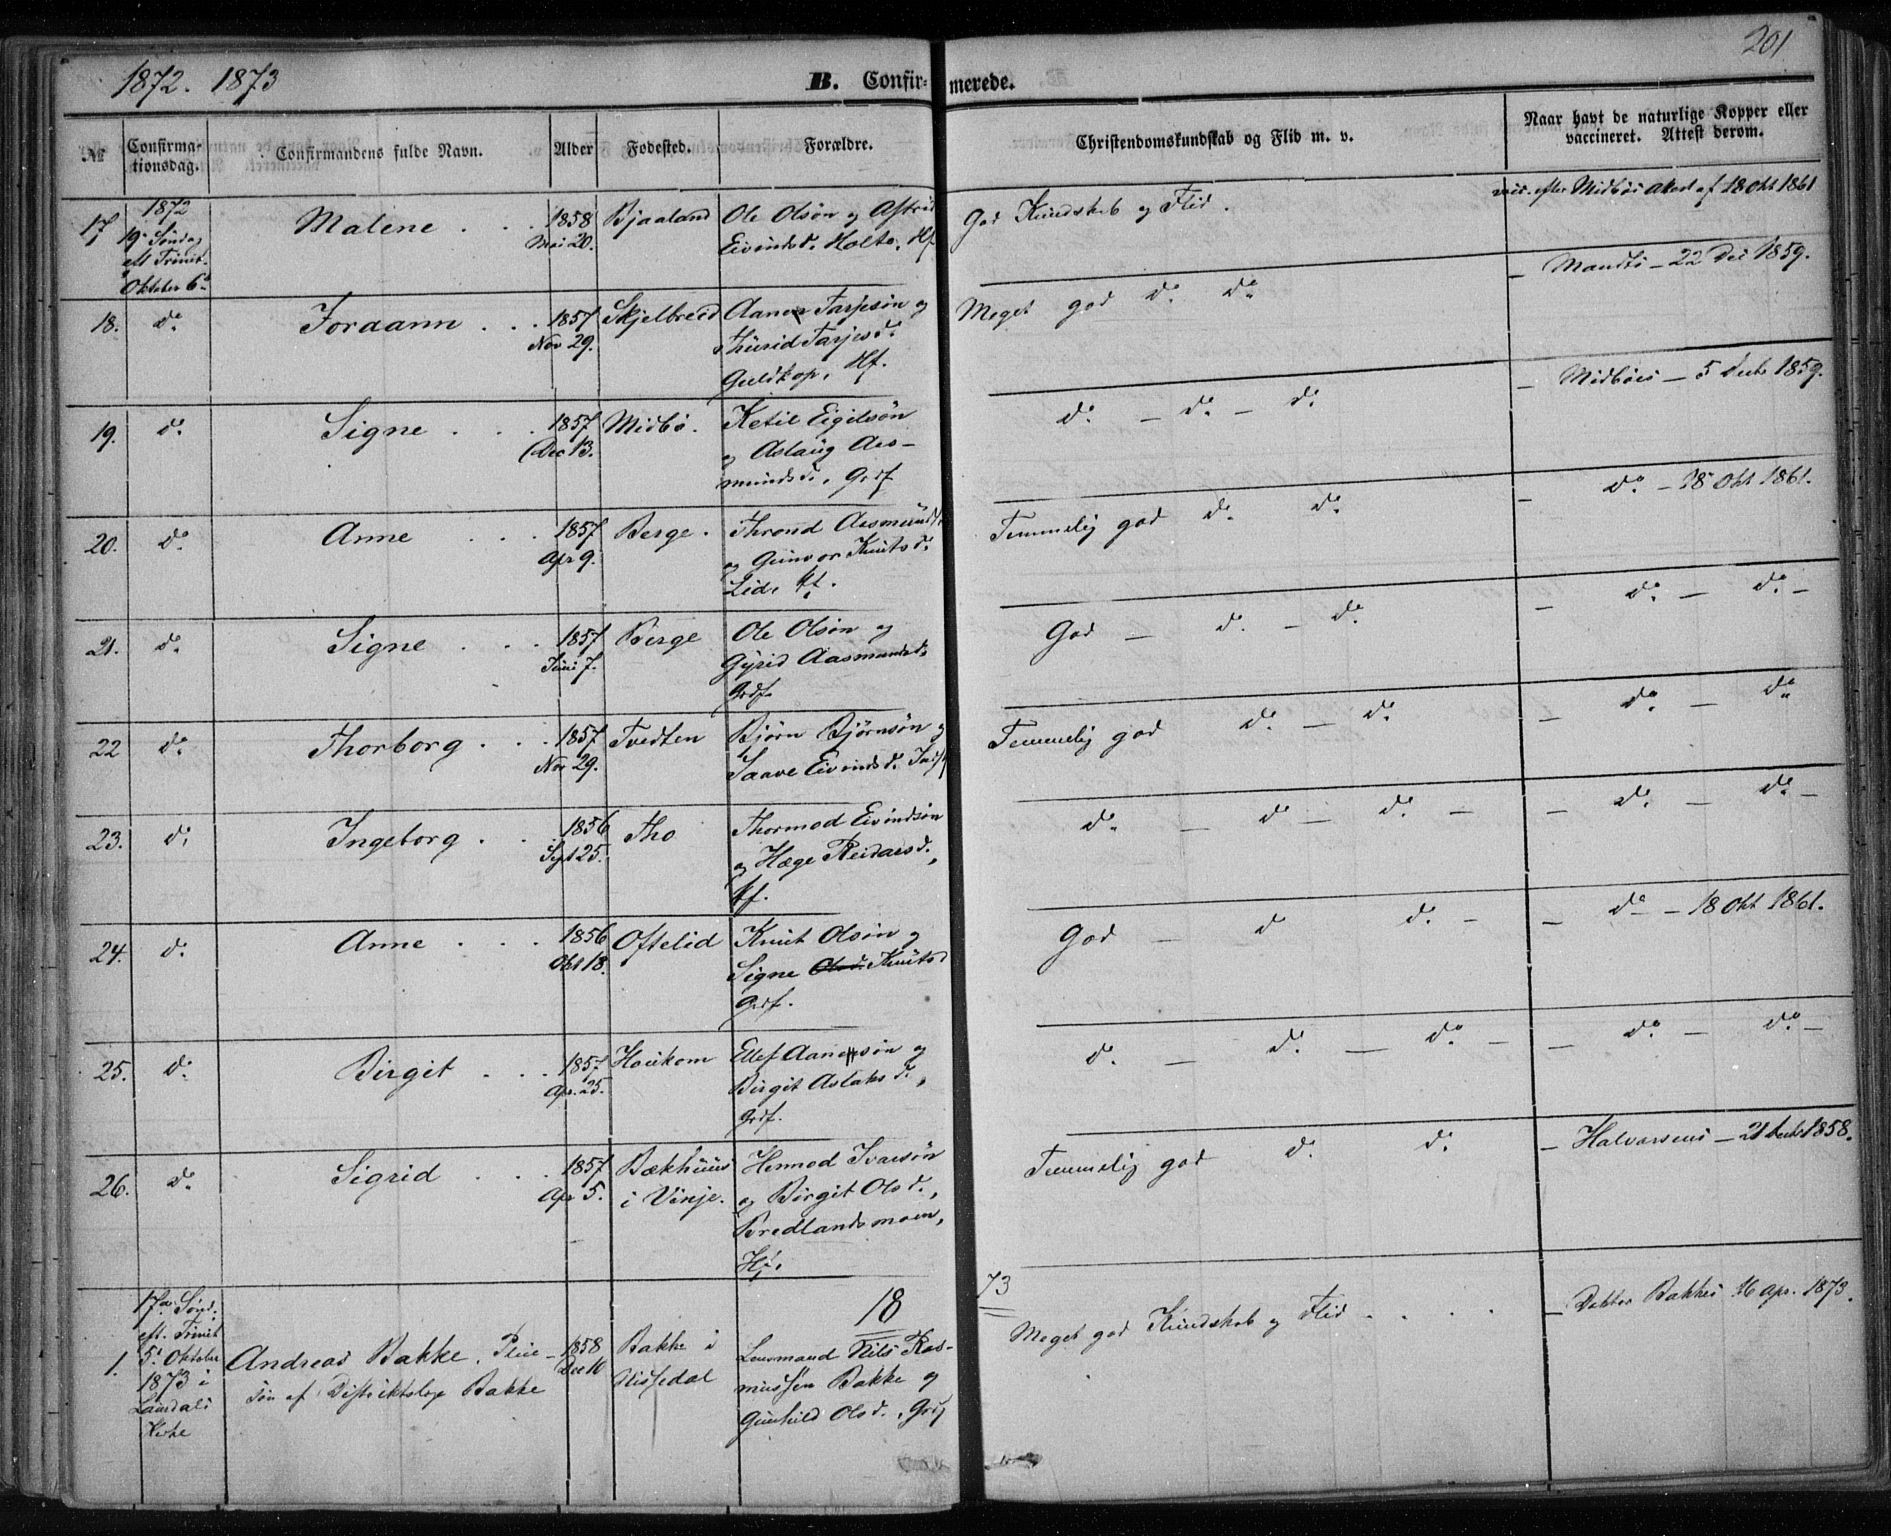 201
1872. 1873
B. Confirmerede.
№ Confirmationsdag. Confirmandens fulde Navn. Alder Fødested. Forældre. Christendomskundskab og Flid m. v. Naar havt de naturlige Kopper eller vaccineret. Attest derom.
17 1872 19de Søndag eft Trinit. Oktober 6te Malene . . . 1858 Mai 20. Bjaaland Ole Olsøn og Astrid Eivindsd. Holte, Hf. God Kundskab og Flid. vac. efter Midbøs Attest af 18 Okt 1861
18. do Joraann . . . 1857 Nov 29. Skjelbreid Aanen Tarjesøn og Thurid Tarjesd. Guldkop, Hf. Meget god do do — Mandts — 22 Dec 1859.
19. do Signe . . . 1857 Dec 13. Midbø. Ketil Eigilsøn og Aslaug Aasmundsd., Grdf do — do — do — Midbøes — 5 Decb 1859.
20. do Anne . . . 1857 Apr 9. Berge. Thrond Aasmunds. og Gunvor Knutsd. Lid, kf. Temmelig god do do — do — 18 Okt 1861.
21. do Signe . . . 1857 Juni 7. Berge Ole Olsøn og Gyrid Aasmundsd. Grdf. God — do — do — do — do —
22 do Thorborg . . . 1857 Nov 29. Tvedten Bjørn Bjørnsøn og Saave Eivindsd. Temmelig god do — do — do — do
23. do Ingeborg . . 1856 Sept 25. Tho Thormod Eivindsøn og Hæge Reidarsd., kf. do — do — do — — do — do —
24. do Anne . . . 1856 Okt 18. Oftelid Knut Olsøn og Signe Olsd. Knutsd Grdf. God — do do — — do — 18 Okt 1861.
25. do Birgit . . . 1857 Apr. 25. Haukom Ellef Aanonsøn og Birgit Aslaksd., Grdf. do — do — do — — do — do —
26. do Sigrid . . . 1857 Apr 5. Bækhuus i Vinje. Hermod Ivarsøn og Birgit Olsd., Bredlandsmoen, Hf. Temmelig god do do — Halvorsens — 21 Decb 1858.
18 73
1. 17de Sønd. eft. Trinit 5te Oktober 1873 i Laurdals Kirke Andreas Bakke. Pleiesøn af Distriktslæge Bakke 1858 Dec 16 Bakke i Nissedal Lensmand Nils Rasmussen Bakke og Gunhild Olsd., Grdf Meget god Kundskab og Flid . . . — Doktor Bakkes 16 Apr. 1873.